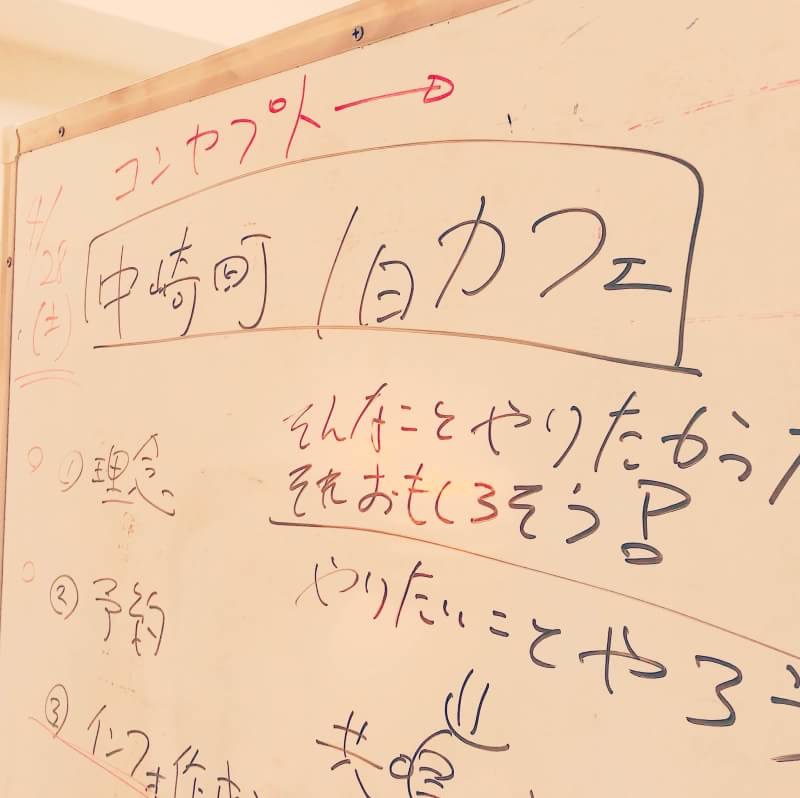 コンセプト →
4/28
(土)
中崎町 1日カフェ
① 理念
そんなことやりたかった
それおもしろそう!?
② 予約
やりたいことやろう
③ インフ
共鳴